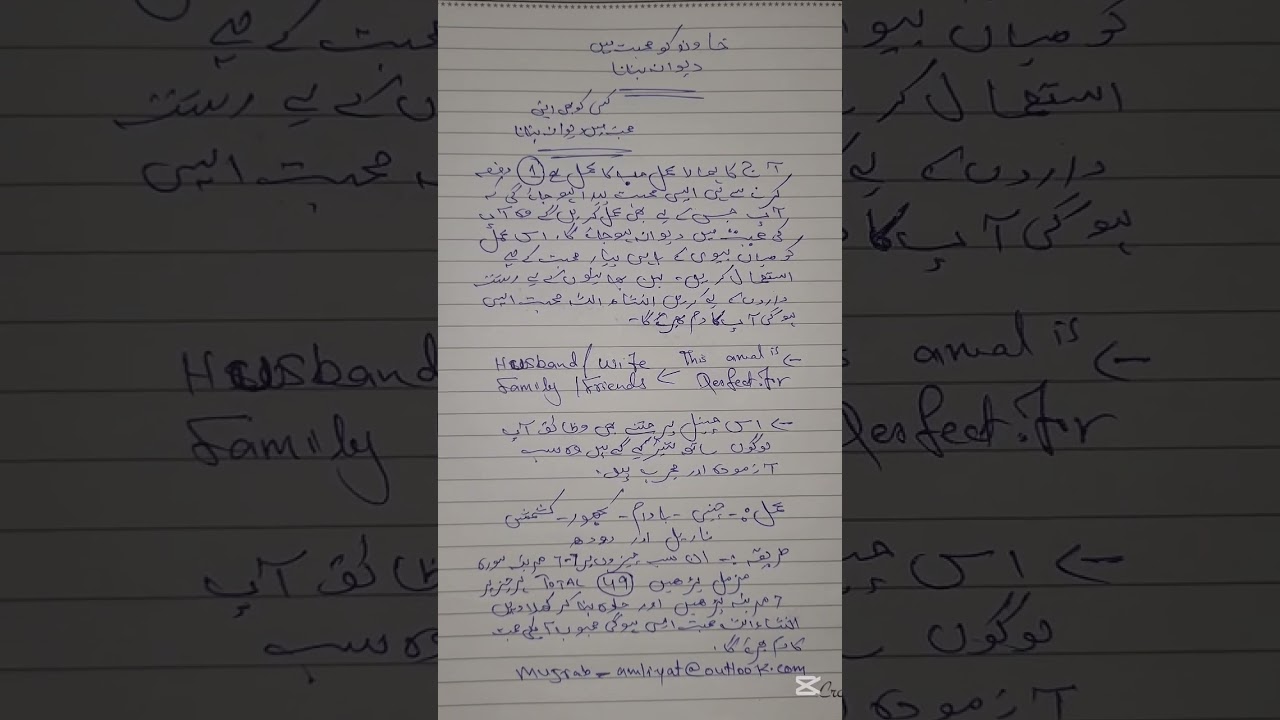 خاوند کو محبت میں
دیوانہ بنانا
کسی کو بھی اپنی
محبت میں دیوانہ بنانا
آج کا ہمارا عمل حب کا عمل ہے 1 دفعہ
کرنے سے ہی ایسی محبت پیدا ہو جائے گی کہ
آپ جس کے لیے بھی عمل کریں گے وہ آپ
کی محبت میں دیوانہ ہو جائے گا، اس عمل
کو میاں بیوی کے اپنی پیار محبت کے لیے
استعمال کریں۔ بہن بھائیوں کے لیے رشتہ
داروں کے لیے کریں انشاء اللہ محبت ایسی
ہو گی آپ کا دم بھرے گا۔
Husband/Wife This amal is ←
Family/Friends ← Perfect For
← اس چینل پر جتنے بھی وظائف آپ
لوگوں ساتھ شئر کیے گے ہیں وہ سب
آزمودہ اور مجرب ہیں۔
عمل:۔ چینی - بادام - کھجور - کشمش
ناریل اور دودھ
طریقہ:۔ ان سب چیزوں پر 7-7 مرتبہ سورہ
مزمل پڑھیں TOTAL 49 ہر چیز پر
7 مرتبہ پڑھیں اور حلوہ بنا کر کھلا دیں
انشاء اللہ محبت ایسی ہو گی محبوب آپکی محبت
کا دم بھرے گا۔
mujrab-amliyat@outlook.com